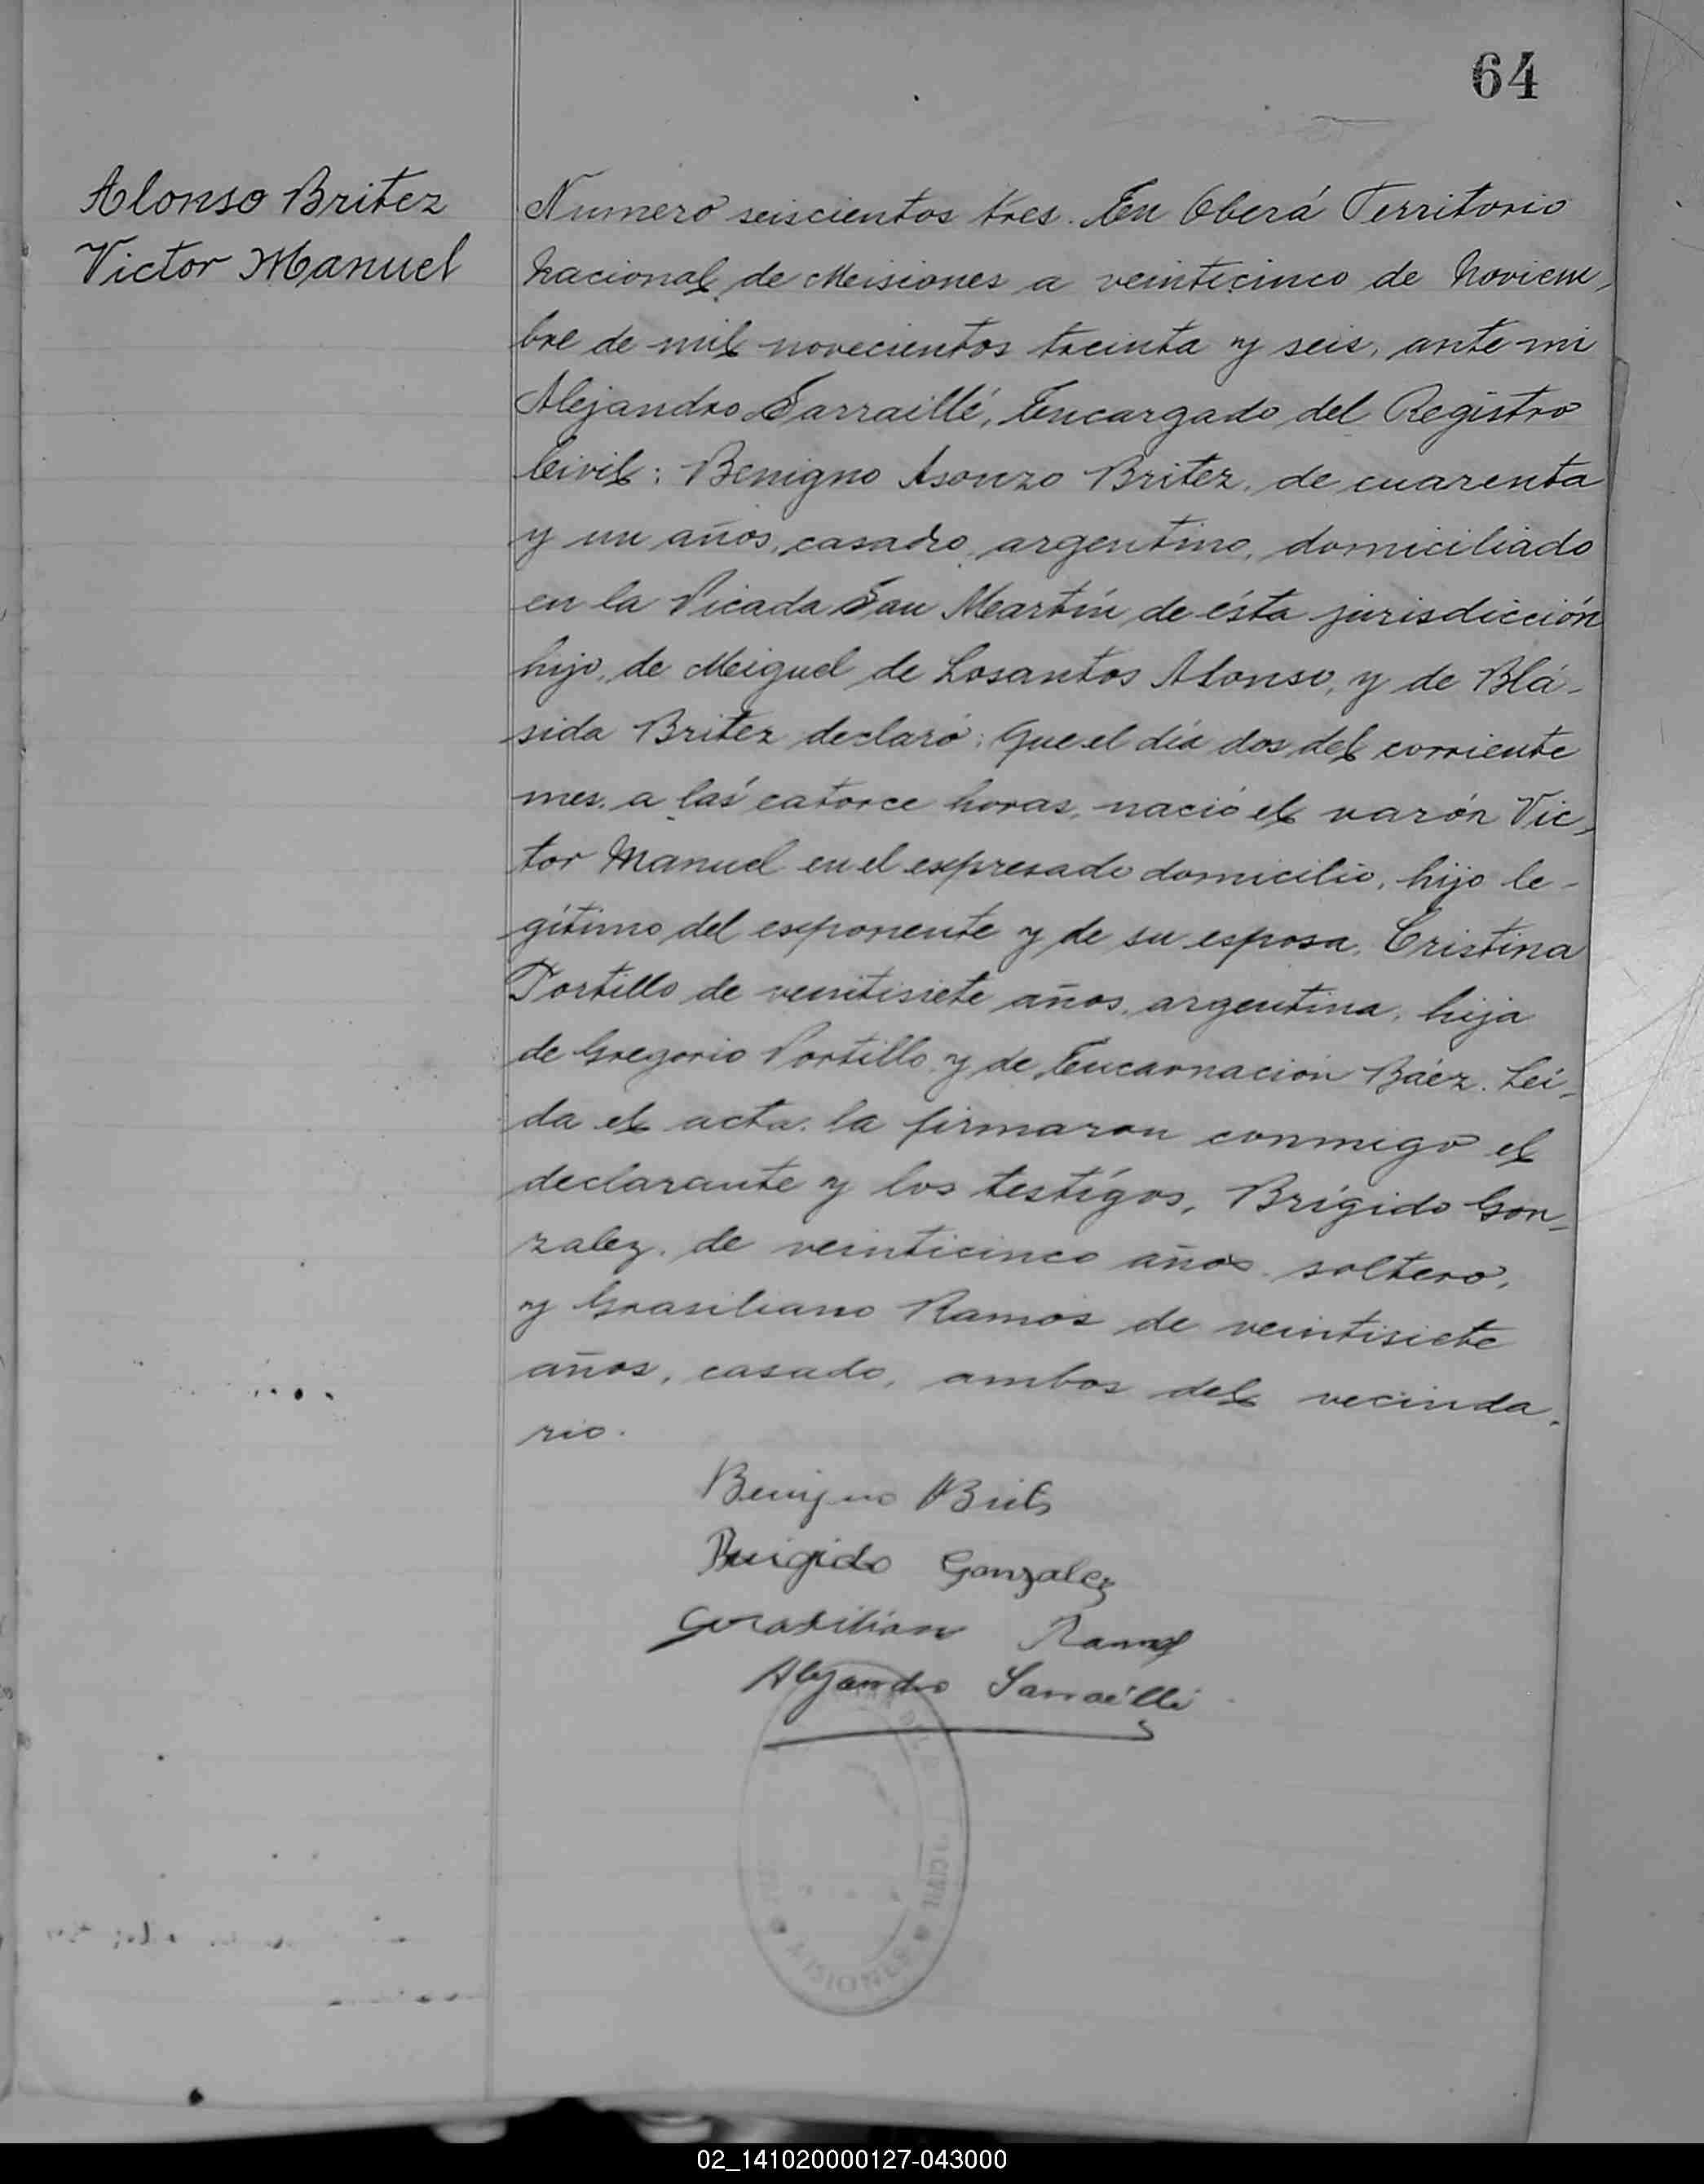 64
Alonso Britez
Victor Manuel
Numero seiscientos tres. En Oberá Territorio
Nacional de Misiones a veinticinco de Noviem-
bre de mil novecientos treinta y seis, ante mi
Alejandro Sarraillé, Encargado del Registro
Civil: Benigno Asonzo Britez, de cuarenta
y un años, casado, argentino, domiciliado
en la Picada San Martín de ésta jurisdicción
hijo, de Miguel de Losantos Alonso, y de Blá-
sida Britez declaró: Que el día dos del corriente
mes, a las catorce horas, nació el varón Vic-
tor Manuel en el expresado domicilio, hijo le-
gítimo del exponente y de su esposa, Cristina
Portillo de veintisiete años, argentina, hija
de Gregorio Portillo y de Encarnación Báez. Leí-
da el acta, la firmaron conmigo el
declarante y los testígos, Brígido Gon-
zalez, de veinticinco años soltero,
y Grasiliano Ramos de veintisiete
años, casado, ambos del vecinda-
rio.
Benigno ABrits
Brigido Gonzalez
Grasiliano Ramos
Alejandro Sarraillé
CIVIL
MISIONES
02_141020000127-043000